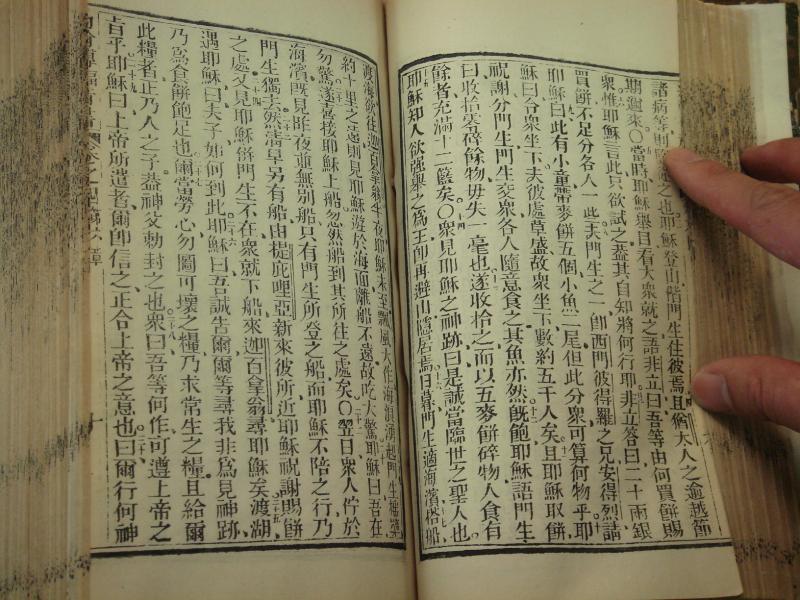 諸病等則
之也耶穌登山偕門生住彼焉且猶太人之逾越節
期邇來〇當時耶穌舉目看大衆就之語非立曰吾等由何買餅賜
衆惟耶穌言此只欲試之蓋其自知將何行耶非立答曰二十兩銀
買餅不足分各人一些夫門生之一卽西門彼得羅之兄安得烈請
耶穌曰此有小童帶麥餅五個小魚二尾但此分衆可算何物乎耶
穌曰令衆坐下夫彼處草盛故衆坐下數約五千人矣且耶穌取餅
祝謝分門生門生交衆各人隨意食之其魚亦然旣飽耶穌語門生
曰收拾零碎餘物毋失一毫也遂收拾之而以五麥餅碎物人食有
餘者充滿十二籃矣〇衆見耶穌之神跡曰是誠當臨世之聖人也
耶穌知人欲強舉之爲王卽再避山隱居焉日暮門生適海濱搭船
渡海欲往迦百拿翁半夜耶穌未至飄風大作海浪湧起門生
約十里之遠則見耶穌遊於海面離船不遠故吃大驚耶穌曰吾在
勿驚遂喜接耶穌上船忽然船到其所往之處矣〇翌日衆人佇於
海濱旣見昨夜並無別船只有門生所登之船而耶穌不陪之行乃
門生獨去然清早另有船由提庇哩亞新來彼所近耶穌祝謝賜餅
之處夫見耶穌餅門生不在衆就下船來迦百拿翁尋耶穌矣渡湖
遇耶穌曰夫子如何到此耶穌曰吾誠告爾爾等尋我非爲見神跡
乃爲食餅飽足也爾當勞心勿圖可壞之糧乃求常生之糧且給爾
此糧者正乃人之子蓋神父勅封之也衆曰吾等何作可遵上帝之
旨乎耶穌曰上帝所遣者爾卽信之正合上帝之意也曰爾行何神